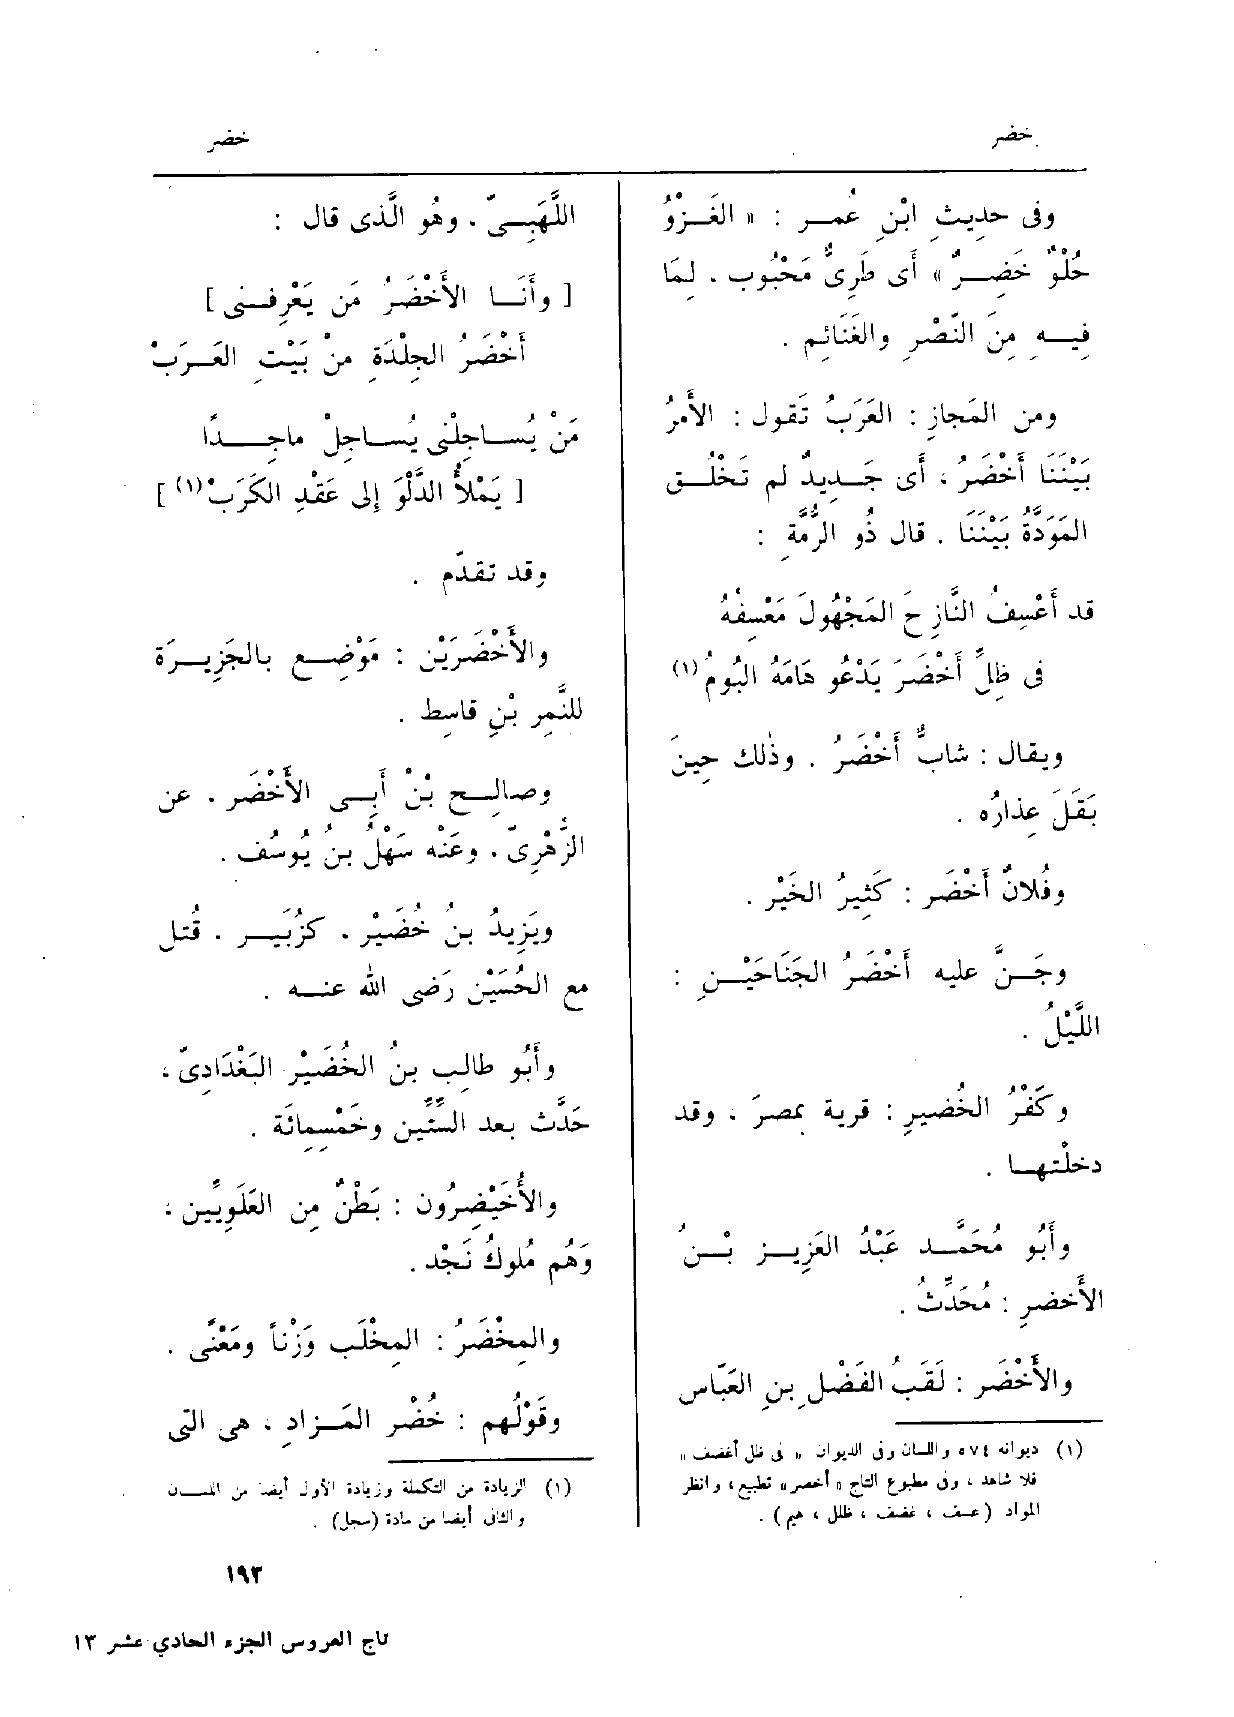 خضر
خضر
وفى حديثِ ابْنِ عُمـر : « الغَـزْوُ
حُلْوٌ خَضِـرٌ » أى طَرِىٌّ مَحْبُوب ، لِمَا
فِيـهِ مِنَ النَّصْرِ والغَنَائِم .
ومن المَجازِ : العَرَبُ تَقول : الأَمْرُ
بَيْنَنَا أَخْضَرُ ، أى جَـدِيدٌ لم تَخْلُـق
المَوَدَّةُ بَيْنَنَا . قال ذُو الرُّمَّةِ :
قد أَعْسِفُ النَّازِحَ المَجْهُولَ مَعْسِفُهُ
فى ظِلِّ أَخْضَرَ يَدْعُو هَامَهُ البُومُ (١)
ويقال : شابٌّ أَخْضَرُ . وذٰلك حِينَ
بَقَلَ عِذارُه .
وفُلانٌ أَخْضَر : كَثِيرُ الخَيْر .
وجَـنَّ عليه أَخْضَرُ الجَنَاحَيْـنِ :
اللَّيْلُ .
وكَفْرُ الخُضيرِ : قرية بمصرَ ، وقد
دخلْتهـا .
وأَبُو مُحَمَّـد عَبْدُ العَزِيـز بْـنُ
الأَخضرِ : مُحَدِّثُ .
والأَخْضَر : لَقَبُ الفَضْلِ بنِ العَبّاس
(١) ديوانه ٥٧٤ واللسان وفى الديوان « فى ظل أغضف »
فلا شاهد ، وفى مطبوع التاج « أخضر » تطبيع ، وانظر
المواد (عسف ، غضف ، ظلل ، هيم) .
اللَّهَبِـىّ . وهُو الَّذى قال :
[ وأَنَـا الأَخْضَرُ مَن يَعْرِفـنى ]
أَخْضَرُ الجِلْدَةِ مِنْ بَيْتِ العَـرَبْ
مَنْ يُسـاجِلْنى يُسـاجِلْ ماجِـدًا
[ يَمْلأُ الدَّلْوَ إلى عَقْدِ الكَرَبْ (١) ]
وقد تقدّم .
والأَخْضَرَيْن : مَوْضِـع بالجَزِيـرَة
للنَّمِر بْنِ قاسِط .
وصالِـح بْنُ أَبِـى الأَخْضَر ، عن
الزُّهْرِىّ ، وعَنْه سَهْلُ بنُ يُوسُف .
ويَزِيدُ بنُ خُضَيْر ، كزُبَيـر ، قُتل
مع الحُسَيْن رَضى الله عنـه .
وأَبُو طالِب بنُ الخُضَيْر البَغْدَادِىّ ،
حَدَّث بعد السِّتِّين وخَمْسِمِائَة .
والأُخَيْضِرُون : بَطْنٌ مِن العَلَوِيِّين ،
وَهُم مُلوكُ نَجْد .
والمِخْضَرُ : المِخْلَب وَزْناً ومَعْنًى .
وقَوْلُهم : خُضْر المَـزادِ ، هى التى
(١) الزيادة من التكملة وزيادة الأول أيضا من اللسـان
والثانى أيضا من مادة (سجل) .
١٩٣
تاج العروس الجزء الحادي عشر ١٣